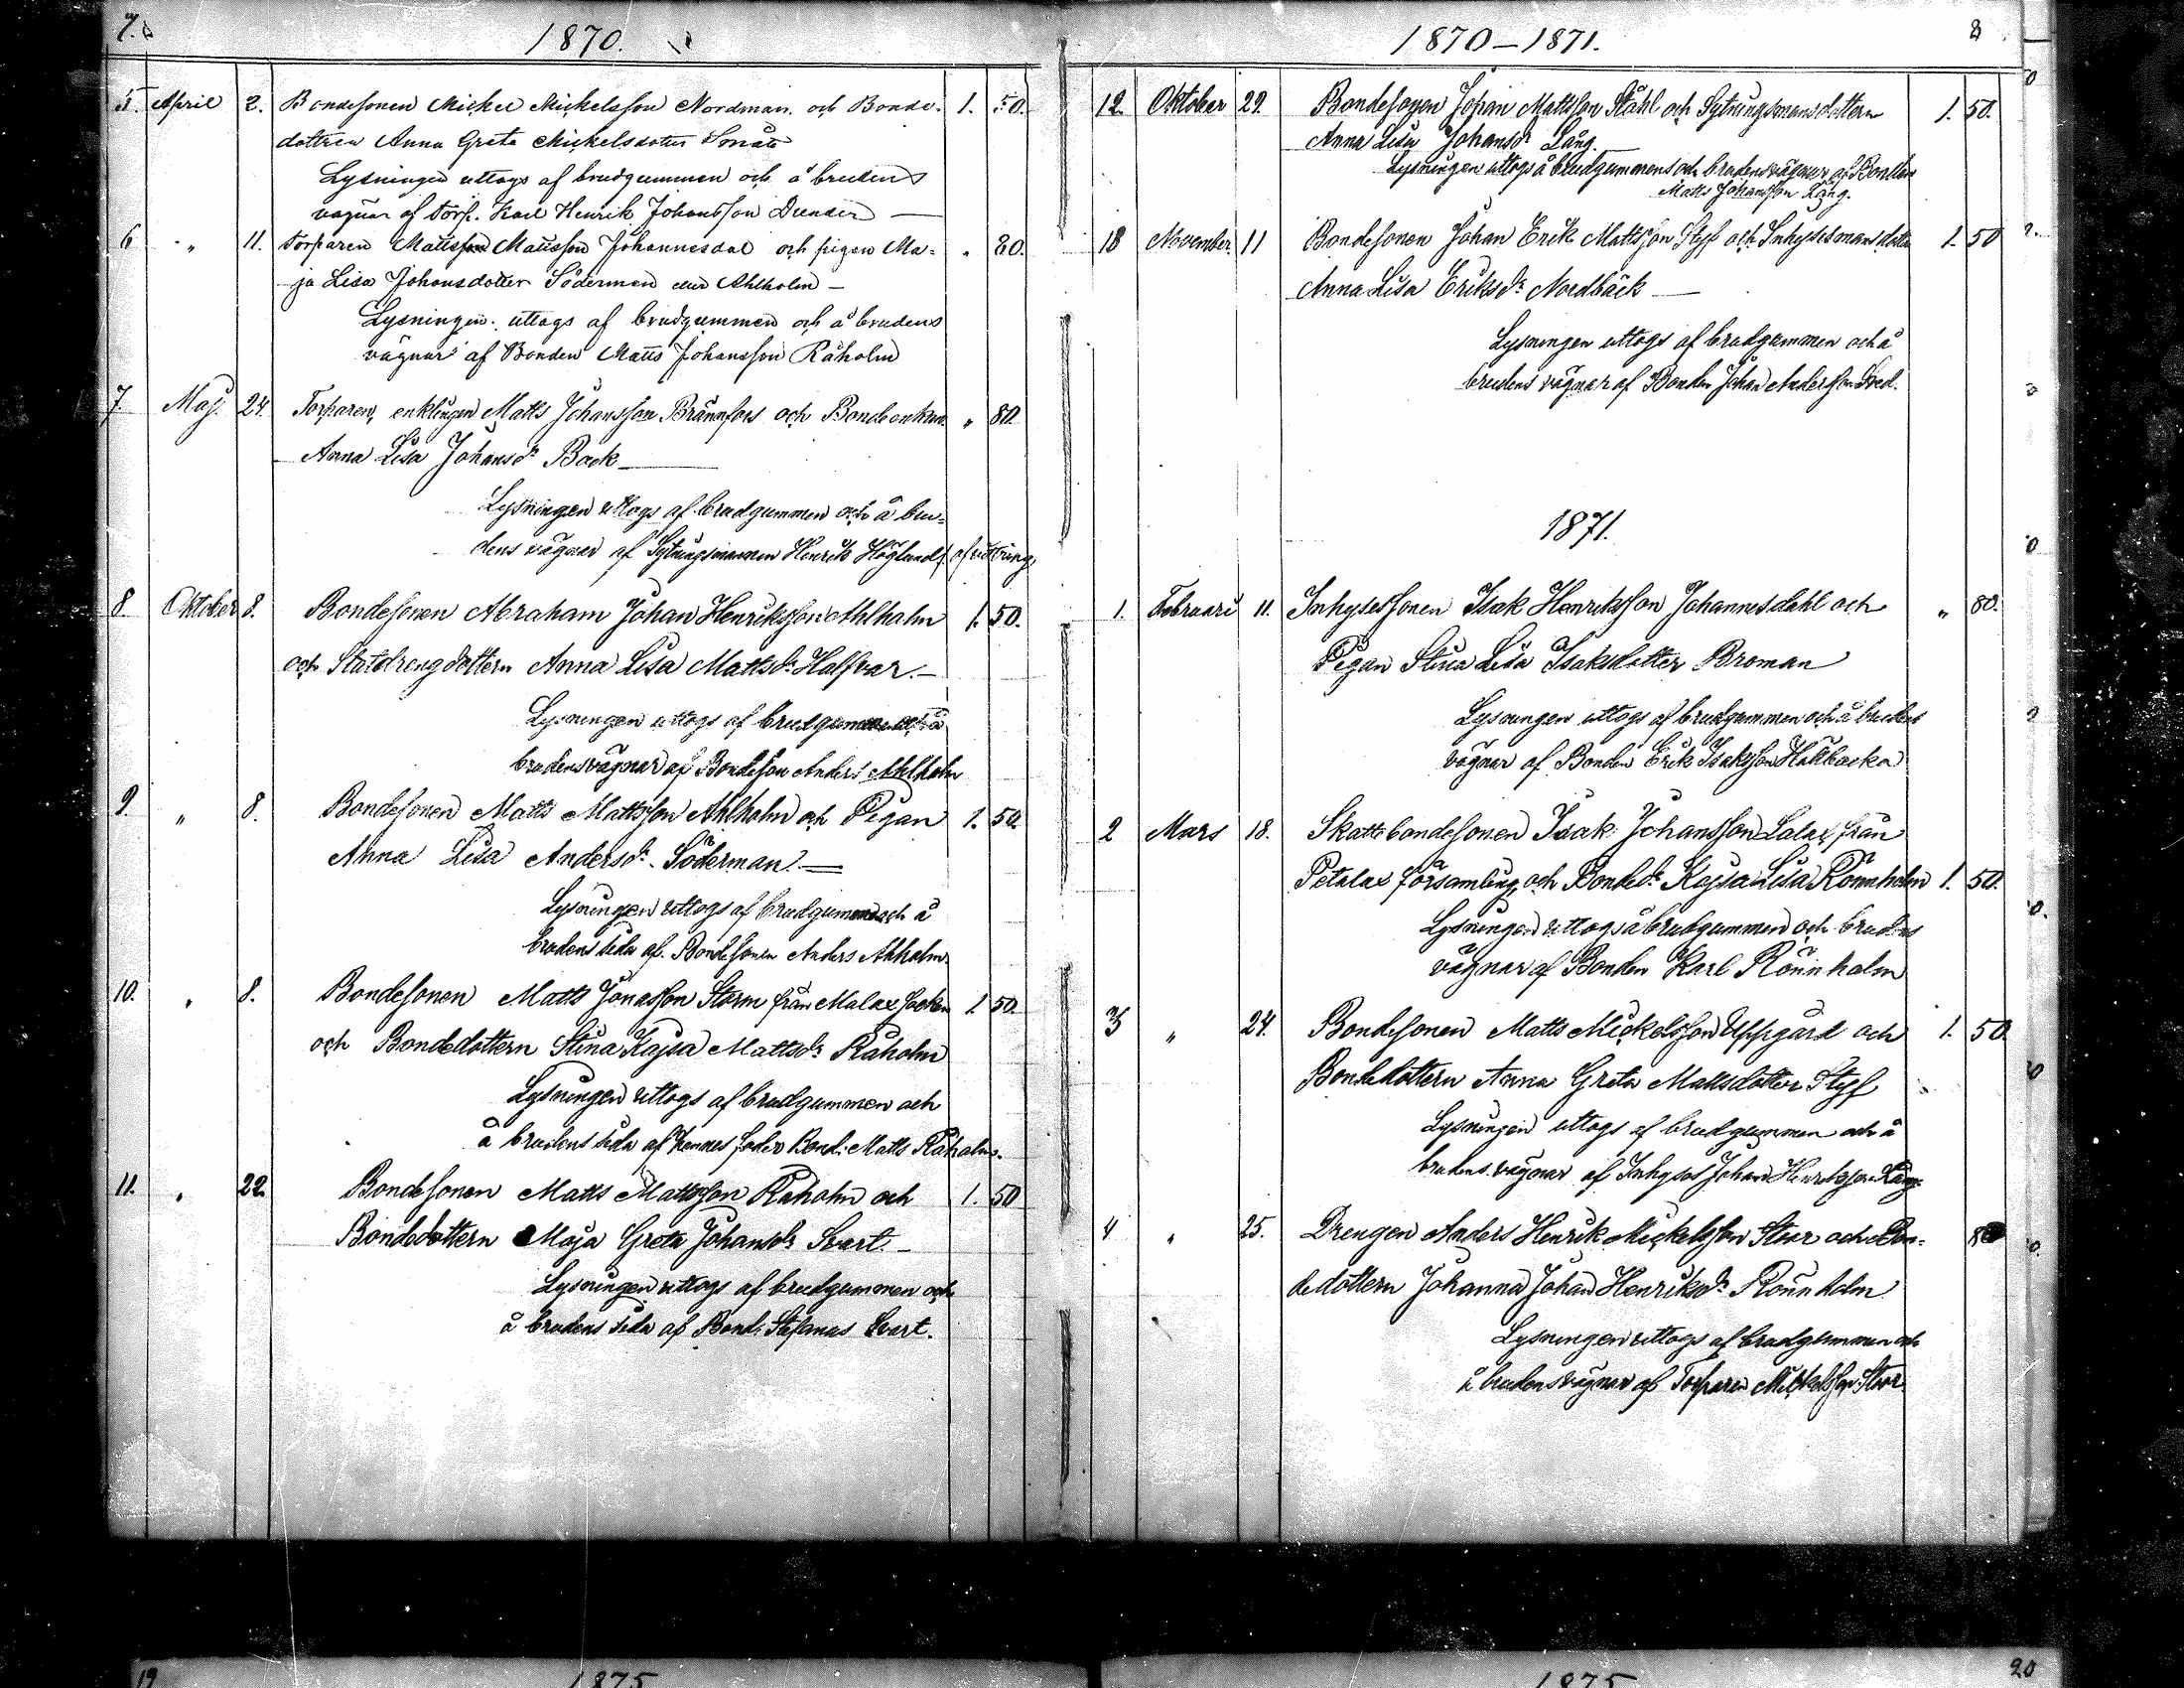 7.
1870.
5. April 2. Bondesonen Mickel Mickelsson Nordman och Bonde- 1. 50.
dottren Anna Greta Mickelsdotter
Lysningen uttogs af brudgummen och å brudens
vägnar af torp. Karl Henrik Johansson Dunder
6 " 11. Torparen Mattsson Mattsson Johannesdal och pigan Ma- " 80.
ja Lisa Johansdotter Söderman Ahlholm
Lysningen uttogs af brudgummen och å brudens
vägnar af Bonden Matts Johansson Råholm
7. Maj. 24. Torparen, enklingen Matts Johansson Brännfors och Bondeenkan " 80.
Anna Lisa Johansdr Back
Lysningen uttogs af brudgummen och å bru-
dens vägnar af Sytningsmannen Henrik Höglund
8. Oktober 8. Bondesonen Abraham Johan Henriksson Ahlholm 1. 50.
och Statdrengdottern Anna Lisa Mattsdr Halfvar.
Lysningen uttogs af brudgummen och å
brudens vägnar af Bondeson Anders Ahlholm
9. " 8. Bondesonen Matts Mattsson Ahlholm och Pigan 1. 50.
Anna Lisa Andersdr Söderman.
Lysningen uttogs af brudgummen och å
brudens sida af Bondesonen Anders Ahlholm.
10. " 8. Bondesonen Matts Jonasson Storm från Malax Socken 1. 50.
och Bondedottern Stina Kajsa Mattsdr Råholm
Lysningen uttogs af brudgummen och
å brudens sida af hennes fader Bond. Matts Råholm.
11. " 22. Bondesonen Matts Mattsson Råholm och 1. 50
Bondedottern Maja Greta Johansdr Svart.
Lysningen uttogs af brudgummen och
å brudens sida af Bond. Stefanus Svart.
1870–1871. 8
12. Oktober 29. Bondesonen Johan Mattsson Ståhl och Sytningsmansdottern 1. 50.
Anna Lisa Johansdr Lång.
Lysningen uttogs å brudgummens och brudens vägnar af Bonden
Matts Johansson Lång.
13 November 11 Bondesonen Johan Erik Mattsson Styf och Inhysesmansdottr 1. 50
Anna Lisa Eriksdr Nordbäck
Lysningen uttogs af brudgummen och å
brudens vägnar af Bonden Johan Andersson
1871.
1. Februari 11. Inhysessonen Isak Henriksson Johannesdahl och " 80.
Pigan Stina Lisa Isaksdotter Broman
Lysningen uttogs af brudgummen och å brudens
vägnar af Bonden Erik Isaksson Håkbacka
2 Mars 18. Skattebondesonen Isak Johansson Lalax från
Petalax församling och Bondedr Kajsa Lisa Rönnholm 1. 50.
Lysningen uttogs å brudgummen och brudens
vägnar af Bonden Karl Rönnholm
3 " 24. Bondesonen Matts Mickelsson Uppgård och 1. 50.
Bondedottern Anna Greta Mattsdotter Styf
Lysningen uttogs af brudgummen och å
brudens vägnar af Inhyses Johan Henriksson Lång.
4 " 25. Drengen Anders Henrik Mickelsson Stoor och Bon- 80
dedottern Johanna Johan Henriksdr Rönnholm
Lysningen uttogs af brudgummen och
å brudens vägnar af Torparen Mickelsson Stoor
19 1875
1875 20